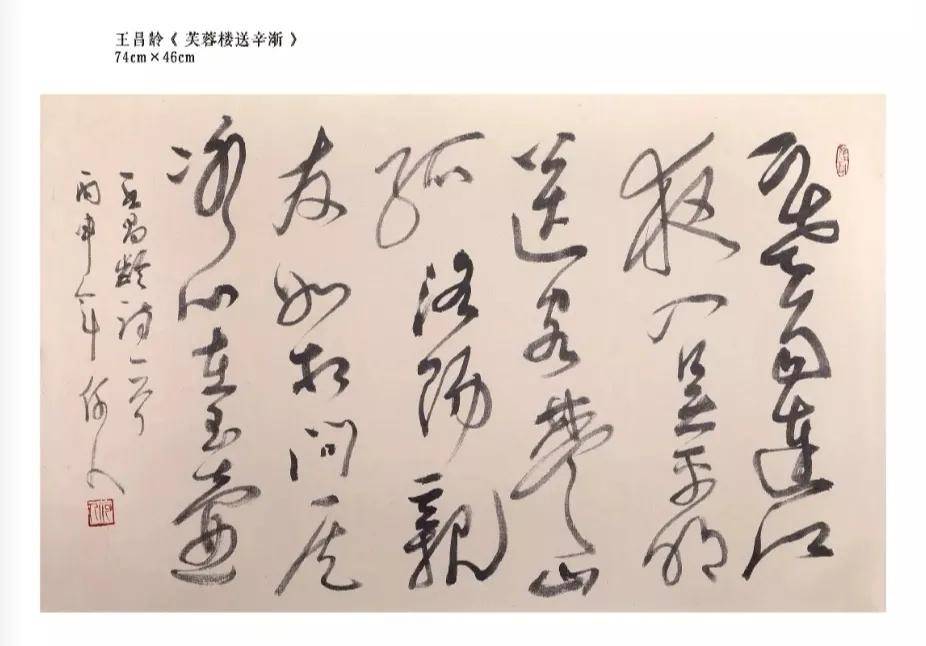 王昌龄《芙蓉楼送辛渐》
74cm×46cm
寒雨連江
夜入吳平明
送客楚山
孤洛陽親
友如相問一片
冰心在玉壺
王昌齡詩一首
丙申年